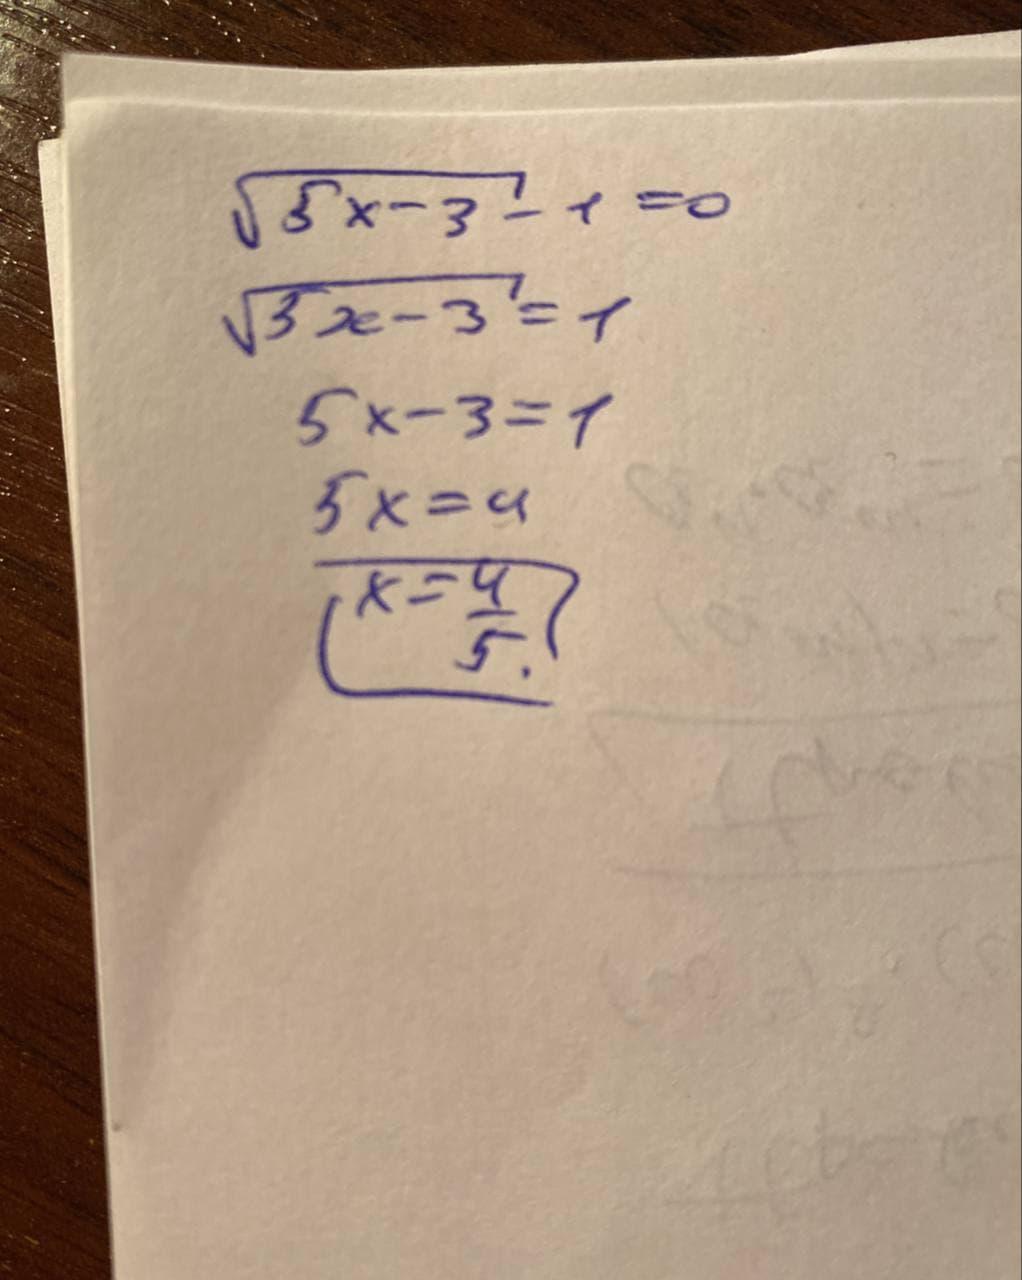 √(5x-3) - 1 = 0
√(5x-3) = 1
5x-3=1
5x=4
x=4/5.